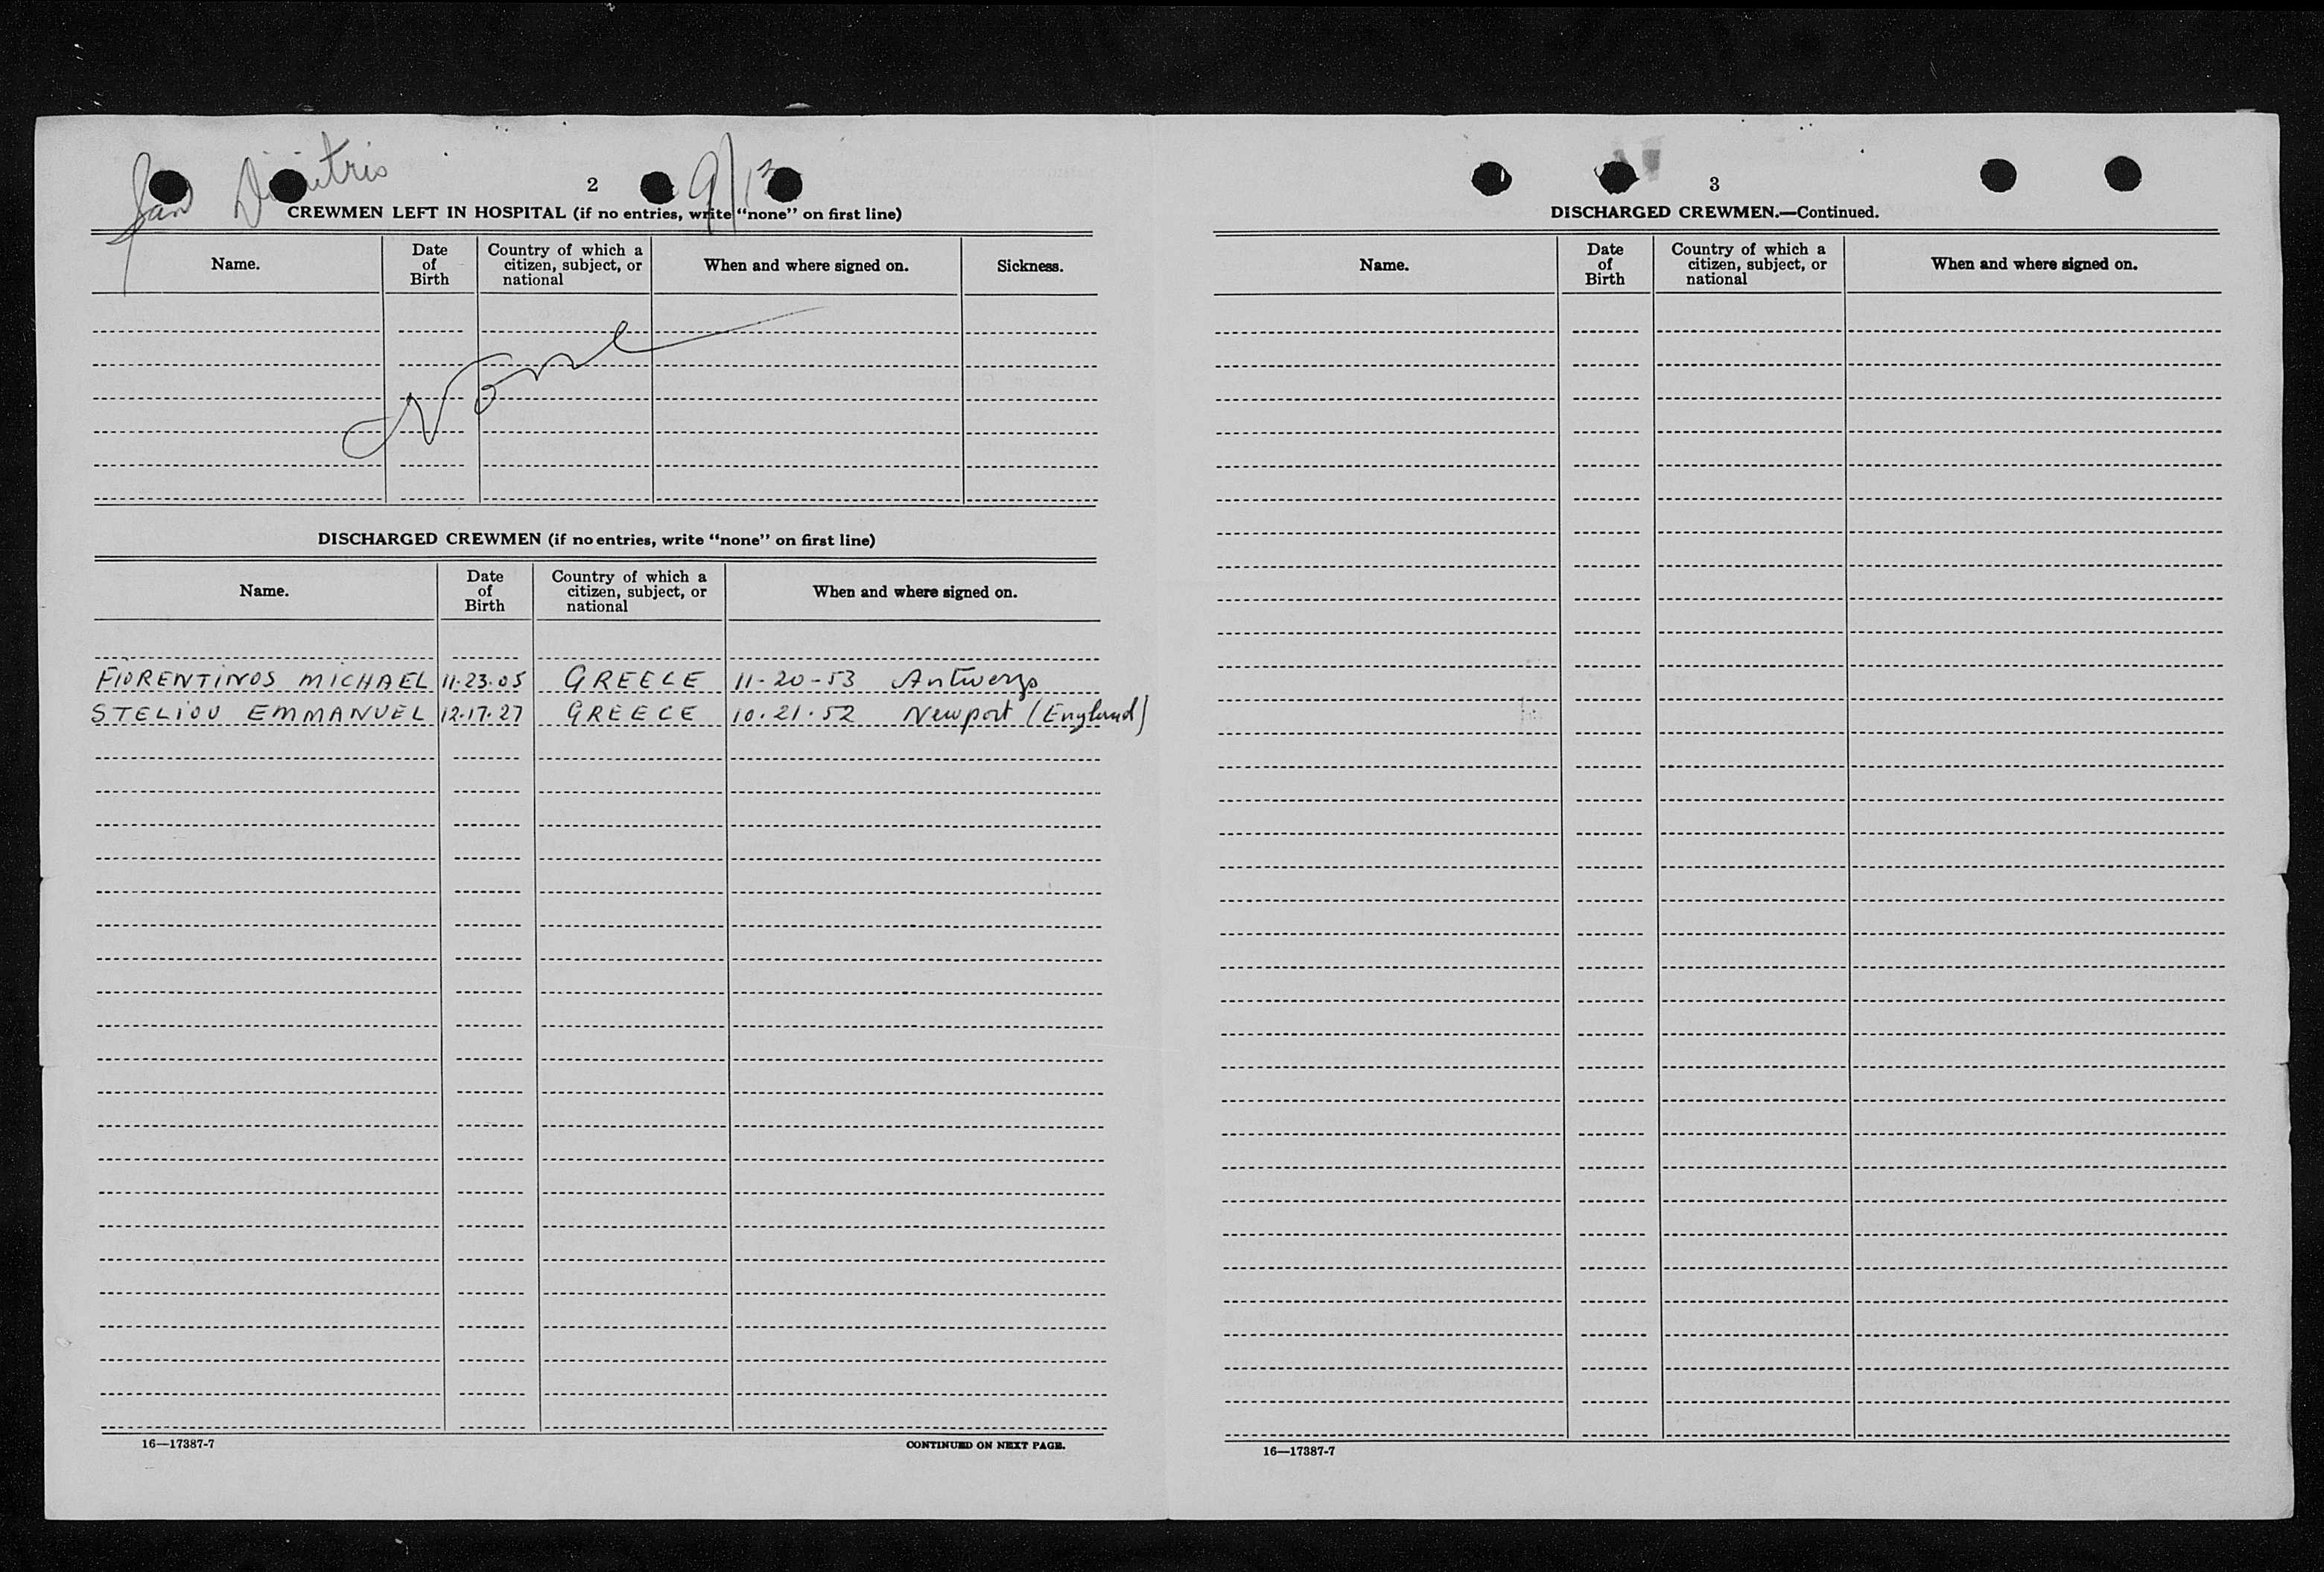 San Dimitris 9/13
2
CREWMEN LEFT IN HOSPITAL (if no entries, write "none" on first line)
Name. Date of Birth Country of which a citizen, subject, or national When and where signed on. Sickness.
None
DISCHARGED CREWMEN (if no entries, write "none" on first line)
Name. Date of Birth Country of which a citizen, subject, or national When and where signed on.
FIORENTINOS MICHAEL 11.23.05 GREECE 11-20-53 Antwerp
STELIOU EMMANUEL 12.17.27 GREECE 10.21.52 Newport (England)
16—17387-7 CONTINUED ON NEXT PAGE.
3
DISCHARGED CREWMEN.—Continued.
Name. Date of Birth Country of which a citizen, subject, or national When and where signed on.
16—17387-7